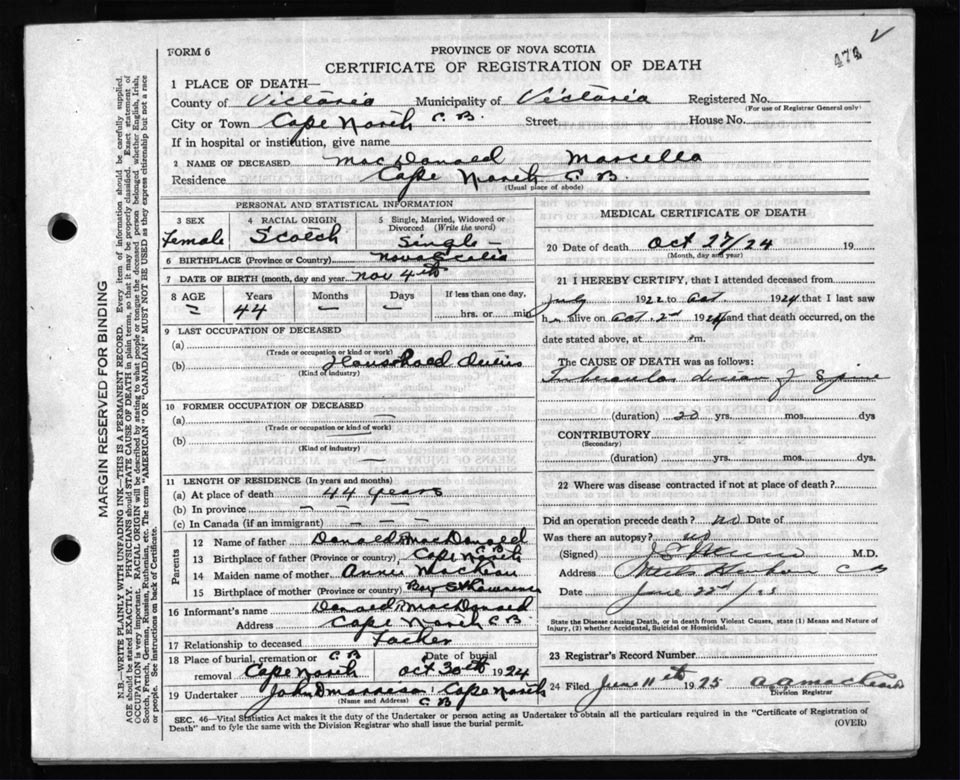 474
FORM 6
PROVINCE OF NOVA SCOTIA
CERTIFICATE OF REGISTRATION OF DEATH
1 PLACE OF DEATH—
County of Victoria Municipality of Victoria Registered No.
(For use of Registrar General only)
City or Town Cape North C.B. Street House No.
If in hospital or institution, give name
2 NAME OF DECEASED MacDonald Marcella
Residence Cape North C.B.
(Usual place of abode)
PERSONAL AND STATISTICAL INFORMATION
3 SEX Female
4 RACIAL ORIGIN Scotch
5 Single, Married, Widowed or Divorced (Write the word) Single —
6 BIRTHPLACE (Province or Country) Nova Scotia
7 DATE OF BIRTH (month, day and year) Nov 4th
8 AGE Years Months Days If less than one day,
44 — — hrs. or min
9 LAST OCCUPATION OF DECEASED
(a)
(Trade or occupation or kind or work)
(b) Household duties
(Kind of industry)
10 FORMER OCCUPATION OF DECEASED
(a) —
(Trade or occupation or kind of work)
(b) —
(Kind of industry)
—
11 LENGTH OF RESIDENCE (In years and months)
(a) At place of death 44 years
(b) In province — — —
(c) In Canada (if an immigrant) — — —
Parents
12 Name of father Donald MacDonald
13 Birthplace of father (Province or country) Cape North C.B.
14 Maiden name of mother Annie
15 Birthplace of mother (Province or country) Bay St Lawrence
16 Informant's name Donald MacDonald
Address Cape North C.B.
17 Relationship to deceased Father
18 Place of burial, cremation or removal Cape North C B
Date of burial Oct 30th 1924
19 Undertaker John D Cape North C B
(Name and Address)
MEDICAL CERTIFICATE OF DEATH
20 Date of death Oct 27/24 19
(Month, day and year)
21 I HEREBY CERTIFY, that I attended deceased from
July 1922 to Oct 1924 that I last saw
h alive on Oct 2nd 1924 and that death occurred, on
date stated above, at m.
The CAUSE OF DEATH was as follows:
Tubercular disease of Spine
(duration) 20 yrs. mos. dys
CONTRIBUTORY
(Secondary)
(duration) yrs. mos. dys.
22 Where was disease contracted if not at place of death?
Did an operation precede death? no Date of
Was there an autopsy? no
(Signed) M.D.
Address Neils Harbour C B
Date June 22nd/25
State the Disease causing Death, or in death from Violent Causes, state (1) Means and Nature of
Injury, (2) whether Accidental, Suicidal or Homicidal.
23 Registrar's Record Number
24 Filed June 11th 1925
Division Registrar
SEC. 46—Vital Statistics Act makes it the duty of the Undertaker or person acting as Undertaker to obtain all the particulars required in the "Certificate of Registration of
Death" and to fyle the same with the Division Registrar who shall issue the burial permit. (OVER)
MARGIN RESERVED FOR BINDING
N.B.—WRITE PLAINLY WITH UNFADING INK—THIS IS A PERMANENT RECORD. Every item of information should be carefully supplied.
AGE should be stated EXACTLY. PHYSICIANS should STATE CAUSE OF DEATH in plain terms, so that it may be properly classified. Exact statement of
OCCUPATION is very important. RACIAL ORIGIN will be described by stating to what people or tongue the deceased person belonged whether English, Irish,
Scotch, French, German, Russian, Ruthenian, etc. The terms "AMERICAN" OR "CANADIAN" MUST NOT BE USED as they express citizenship but not a race
or people. See instructions on back of Certificate.